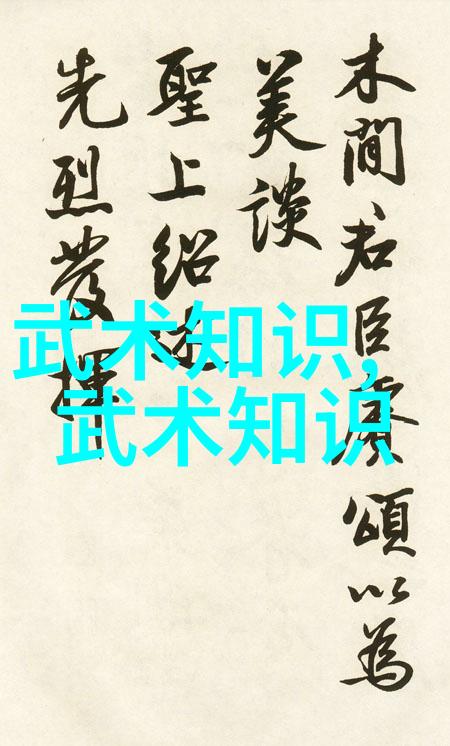 木間君臣賡頌以為
美談
聖上紹述
先烈發揮
武术知识,
武术知识